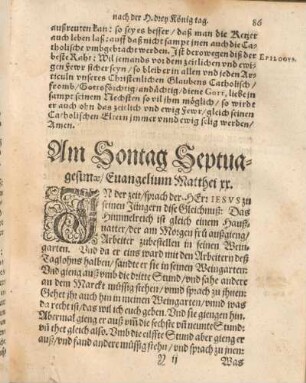 nach der H. drey König tag. 86
außreuten kan: so sey es besser / daß man die Ketzer
auch leben laß: auff daß nicht sampt inen auch die Ca-
tholische vmbgebracht werden. Ist derowegen diß der EPILOGVS.
beste Raht: Wil jemands vor dem zeitlichen vnd ewi-
gen Fewr sicher seyn / so bleibe er in allen vnd jeden Ar-
ticuln vnseres Christenlichen Glaubens Catholisch /
fromb / Gottsförchtig / andächtig / diene Gott, liebe in
sampt seinem Nechsten so vil ihm möglich / so wirdt
er auch ohn das zeitlich vnd ewig Fewr / gleich seinen
Catholischen Eltern immer vnnd ewig selig werden /
Amen.
Am Sontag Septua-
gesima / Euangelium Matthei xx.
IN der zeit / sprach der HErr IESVS zu
seinen Jüngern dise Gleichnuß: Das
Himmelreich ist gleich einem Hauß-
uatter / der am Morgen frü außgieng /
Arbeiter zubestellen in seinen Wein-
garten. Vnd da er eins ward mit den Arbeitern deß
Taglohns halben / sandte er sie in seinen Weingarten.
Vnd gieng auß vmb die dritte Stund / vnd sahe andere
an dem Marckt müssig stehen / vnnd sprach zu jhnen:
Gehet ihr auch hin in meinen Weingarten / vnnd was
da recht ist / das wil ich euch geben. Vnd sie giengen hin.
Abermal gieng er auß vm die sechste vn neunte Stund:
vn thet gleich also. Vmb die eilffte Stund aber gieng er
auß / vnd fand andere müssig stehn / vnd sprach zu jnen:
Y ij Was